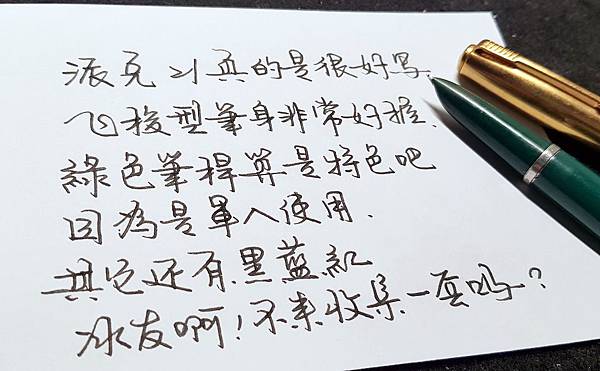 派克21真的是很好写.
飞梭型筆身非常好握.
綠色筆桿算是特色吧
因為是軍人使用.
其它还有黑藍紅
友啊!不来收集一套吗?